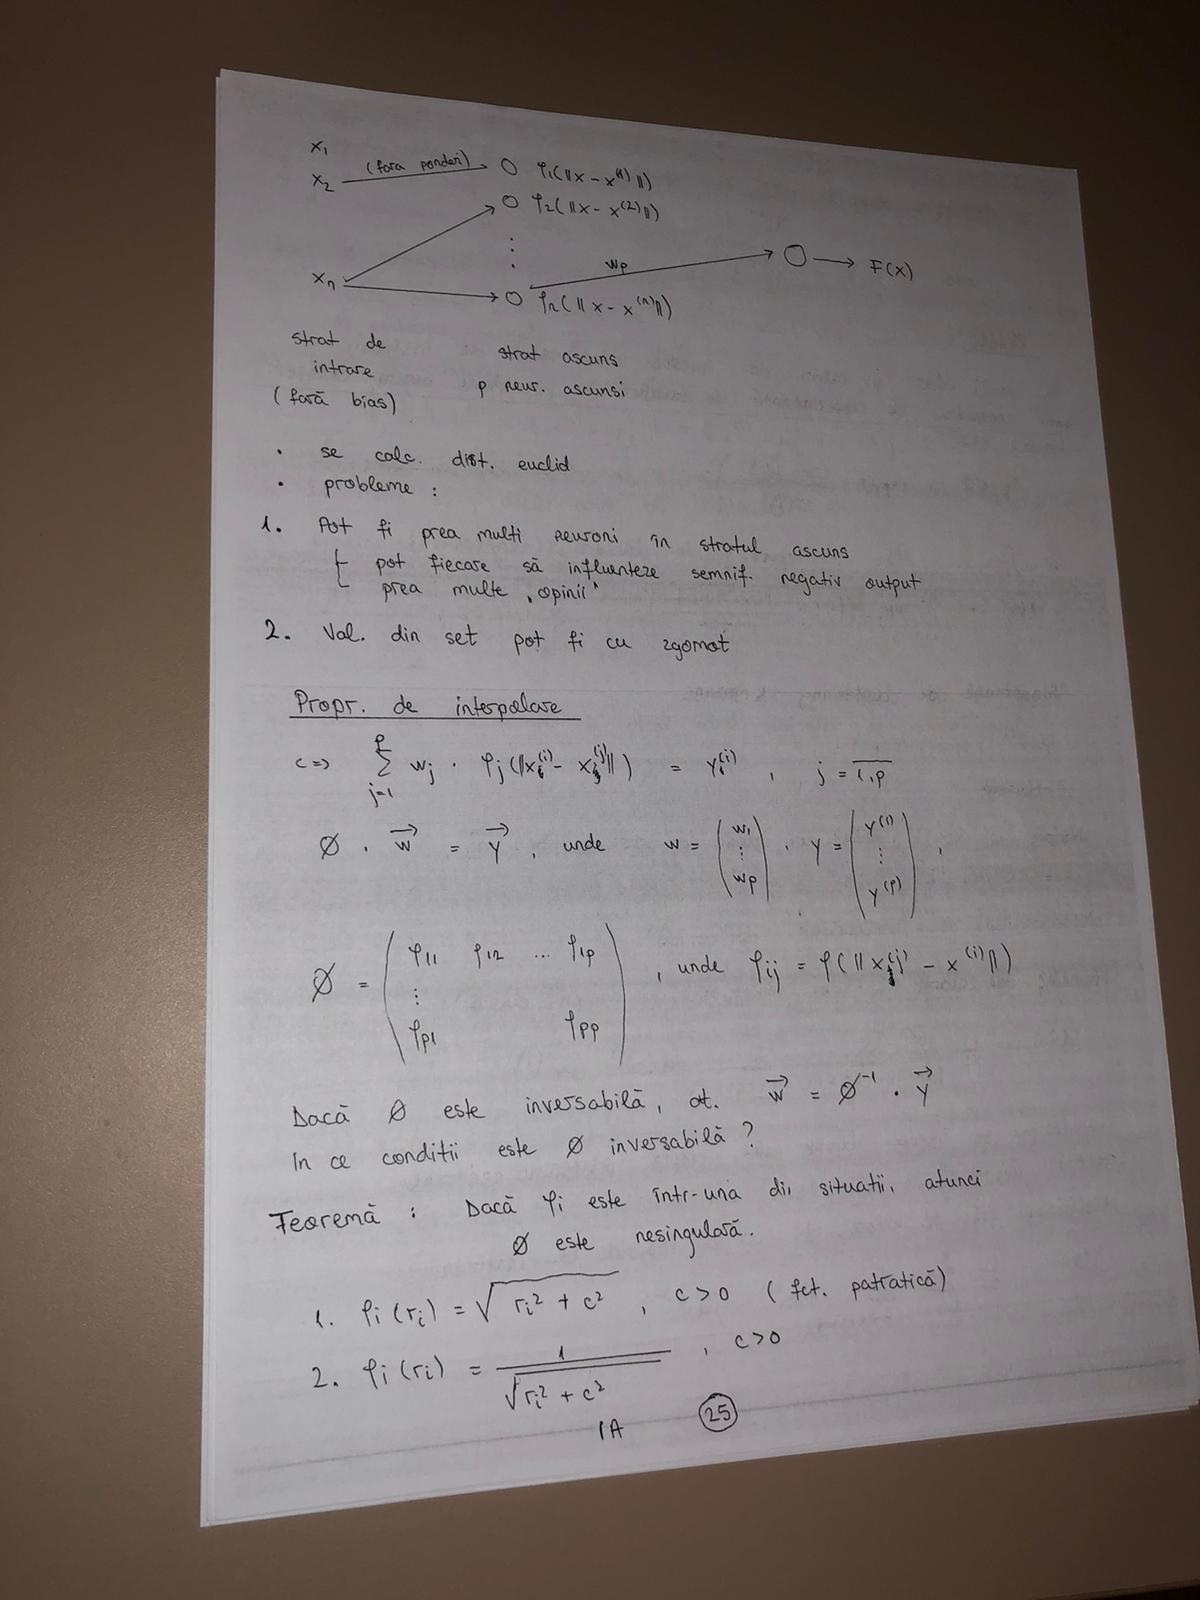 x₁
x₂ (fara ponderi) φ₁(||x - x⁽¹⁾||)
φ₂(||x - x⁽²⁾||)
⋮
wp F(x)
xₙ φₙ(||x - x⁽ⁿ⁾||)
strat de strat ascuns
intrare p neur. ascunsi
(fară bias)
• se calc. dist. euclid
• probleme :
1. Pot fi prea multi neuroni în stratul ascuns
pot fiecare să influenteze semnif. negativ output
prea multe "opinii"
2. Val. din set pot fi cu zgomot
Propr. de interpolare
<=> Σ_{j=1}^{p} wj · φj(||x⁽ⁱ⁾ - x⁽ʲ⁾||) = y⁽ⁱ⁾, j = 1,p
Ø · w⃗ = y⃗, unde w = (w₁ ⋮ wp), y = (y⁽¹⁾ ⋮ y⁽ᵖ⁾),
Ø = (φ11 φ12 ... φ1p ⋮ φp1 φpp), unde φij = φ(||x⁽ʲ⁾ - x⁽ⁱ⁾||)
Dacă Ø este inversabilă, at. w⃗ = Ø⁻¹ · y⃗
In ce conditii este Ø inversabilă ?
Teoremă : Dacă φi este într-una din situatii, atunci
Ø este nesingulară.
1. φi(ri) = √(ri² + c²), c > 0 (fct. patratică)
2. φi(ri) = 1/√(ri² + c²), c > 0
IA 25